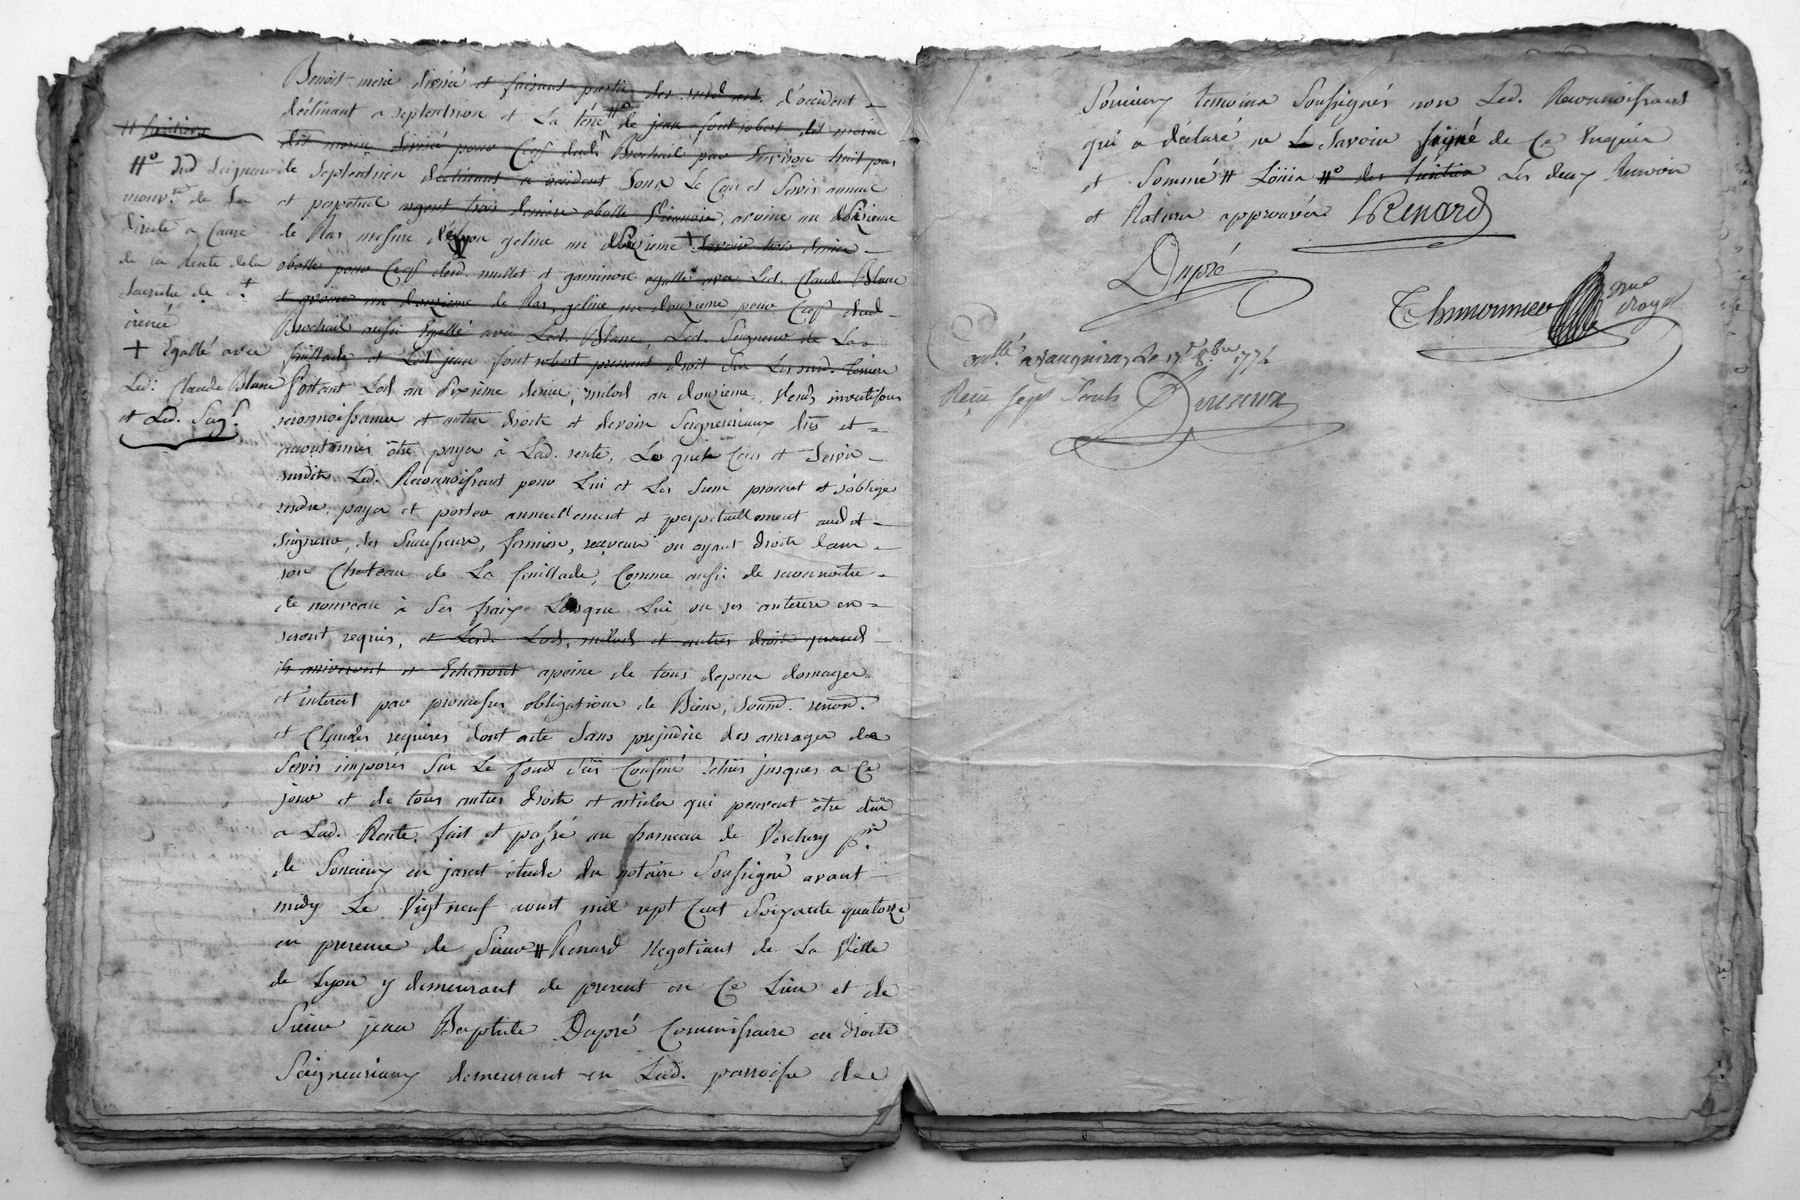 Benoit morié divisée et faisant partie des susd. art. d'occident
declinant a septentrion et La terre #o de jean font robert dit morin
dit morin divisée pour Cest dud. Brocheuil par division huit pas
de Septentrion declinant a occident Sous Le Cens et Servis annuel
et perpetuel argent trois deniers obolle Viennois, avoine un douzieme
de Ras mesure de Lyon geline un douzieme + Savoir trois deniers
obolle pour Cest dud. mullet et gasninon egallé avec Led. Claude Blanc
et avoine un douzieme de Ras, geline, un douzieme pour Cest dud.
Brocheuil aussi Egallé avec Led. Blanc, Led. Seigneur de La
feuillade et Led. jean font robert prenant droit Sur Les susd.
Portant Lods au Sixième denier, milod au douzieme, Vends investisons
reconnoissance et autres droits et devoirs Seigneuriaux dûs et
accoutumés être payés à Lad. rente, Le quel Cens et Servis
susdits Led. Reconnoissant pour Lui et Les Siens promet et s'oblige
rendre, payer et porter annuellement et perpetuellement aud.
Seigneur, Ses Successeurs, fermiers, receveurs ou ayant droits dans
son Chateau de La feuillade, Comme aussi de reconnoitre
de nouveau à Ses fraix Lorsque Lui ou ses auteurs en
seront requis, et Lesd. Lods, milods et autres droits quand
ils arriveront et Echerront apeine de tous depens domages
et interets par promesses obligations de Biens, Soumd. renond.
et Clauses requises dont acte Sans prejudice des arrerages des
Servis imposés Sur Le fond Sus Confiné échûs jusques a Ce
jour et de tous autres droits et articles qui peuvent être dûs
a Lad. Rente, fait et passé au hameau de Verchery psse
de Soucieu en jarest étude du notaire Soussigné avant
midy Le Vigt neuf aoust mil sept Cent Soixante quatorze
en presence de Sieur # Renard Negotiant de La Ville
de Lyon y demeurant de present en Ce Lieu et de
Sieur jean Baptiste Dupré Commissaire en droits
Seigneuriaux demeurant en Lad. parroisse de
#o dud Seigneur
mouv.ce de Sa
directe a Cause
de la Rente de la
irenée
+ Egallé avec
Led. Claude Blanc
et Led. Seig.r
Soucieux temoins Soussignés non Led. Reconnoissant
qui a déclaré ne Le Savoir signé de Ce Enquis
et Sommé # Loüis #o des Les deux Renvois
et Ratures approuvés LRenard
Dupré
Thimonnier nre royal
Con.llé a Vaugneray Le 8bre 1774
Reçu Sept Sols